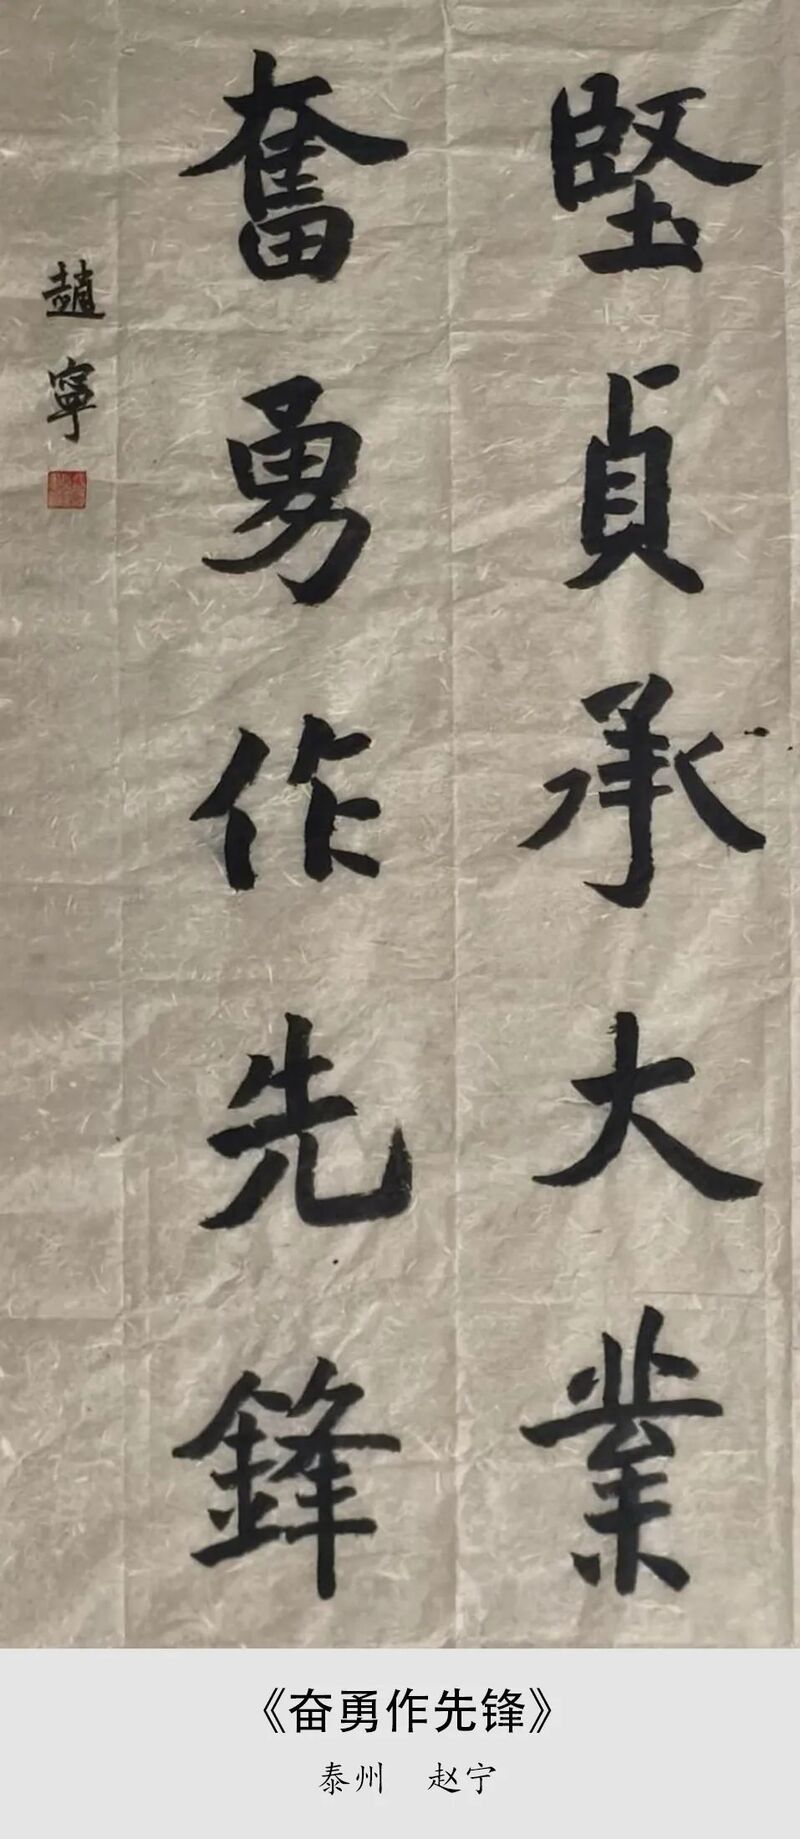 堅貞承大業
奮勇作先鋒
趙寧
《奋勇作先锋》
泰州 赵宁